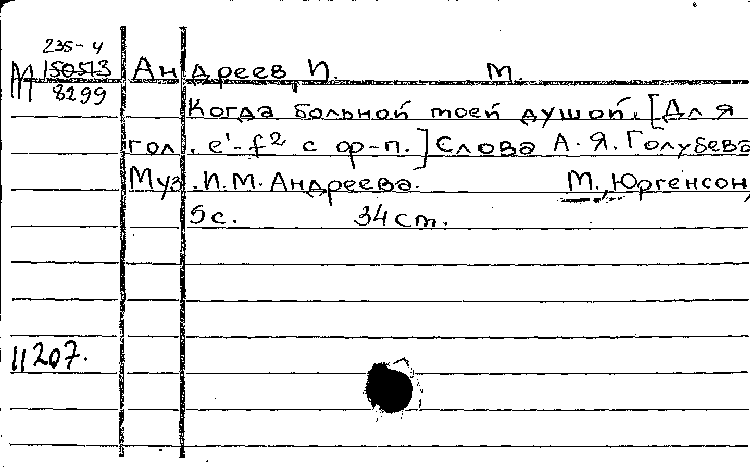 235-4
М 150513
8299
Андреев, И. М.
Когда больной моей душой. [Для
гол. e'-f² с ор-п.] Слова А.Я. Голубева
Муз. И.М. Андреева. М., Юргенсон,
5с. 34 см.
11207.